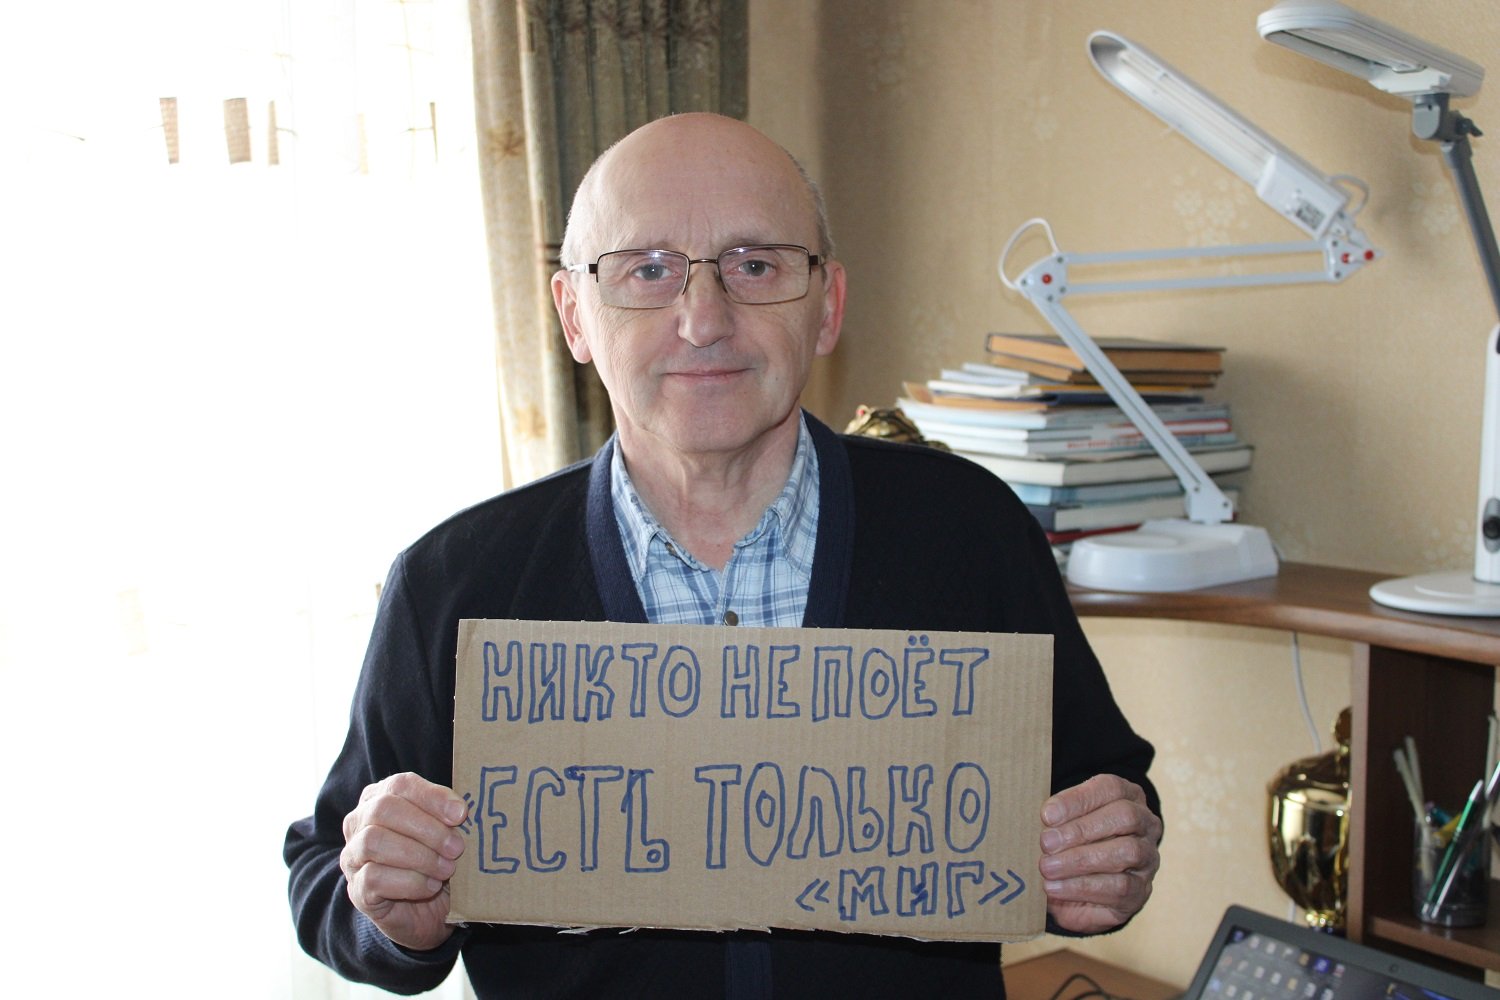 НИКТО НЕ ПОЁТ
«ЕСТЬ ТОЛЬКО
«МИГ»